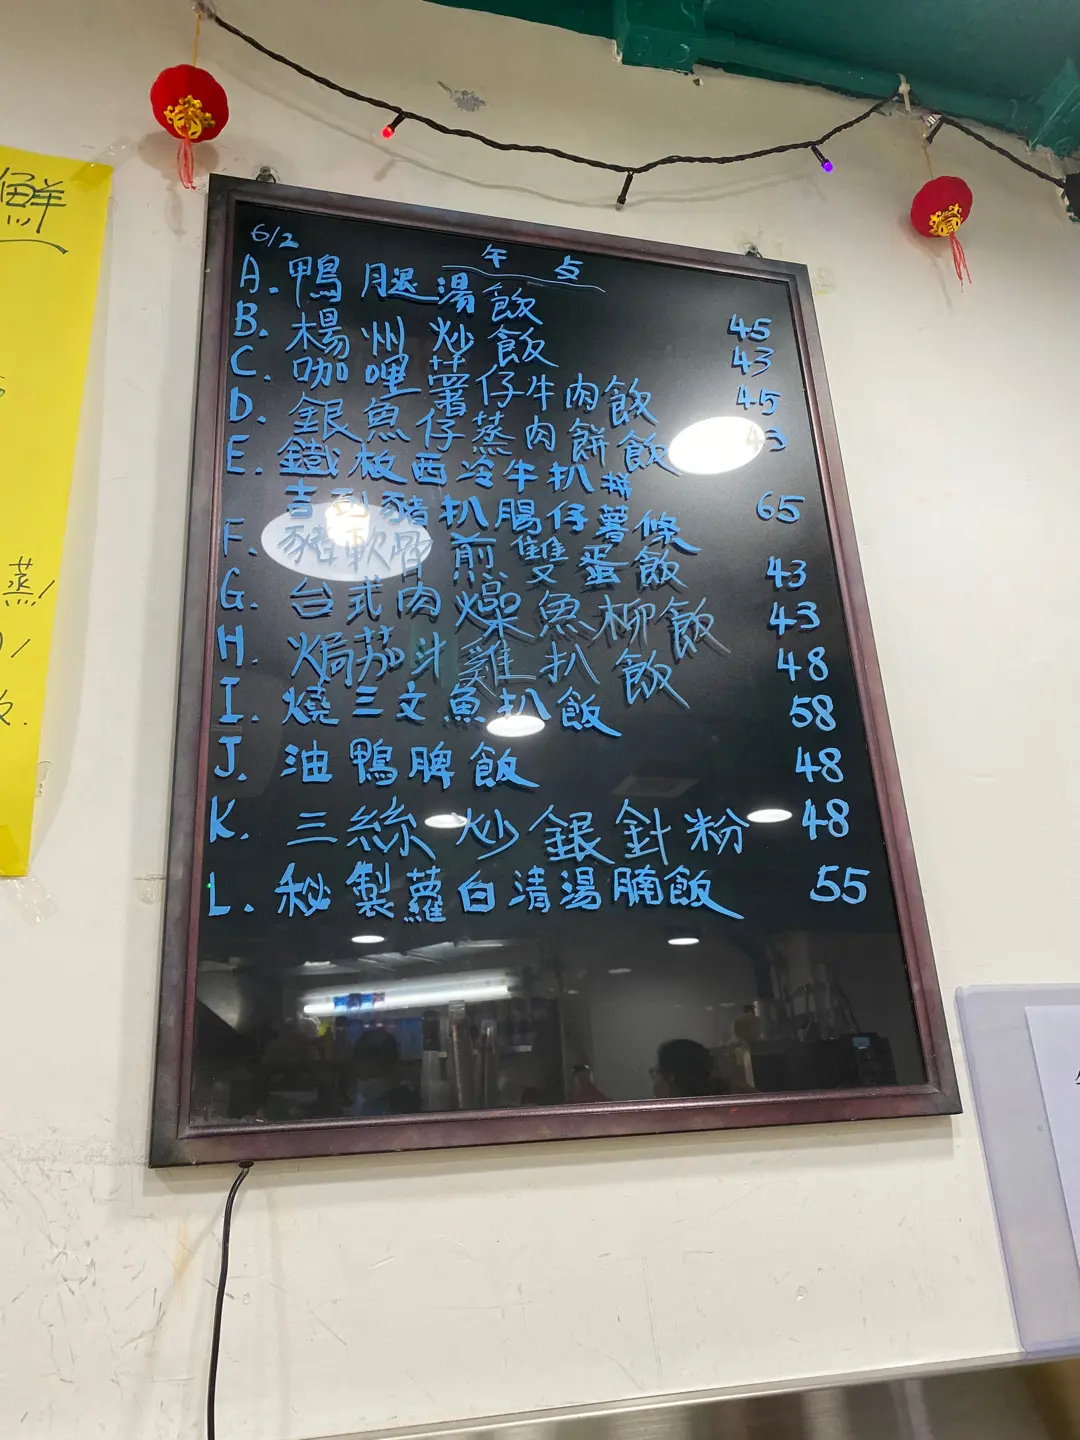 鮮
蒸
飯.
6/2
午 点
A. 鴨 腿 湯 飯 45
B. 楊 州 炒 飯 43
C. 咖 哩 薯 仔 牛 肉 飯 45
D. 銀 魚 仔 蒸 肉 餅 飯 43
E. 鐵 板 西 冷 牛 扒 拼
吉列豬扒腸仔薯條 65
F. 豬軟骨煎雙蛋飯 43
G. 台式肉燥魚柳飯 43
H. 焗茄汁雞扒飯 48
I. 燒三文魚扒飯 58
J. 油鴨脾飯 48
K. 三絲炒銀針粉 48
L. 秘製蘿白清湯腩飯 55